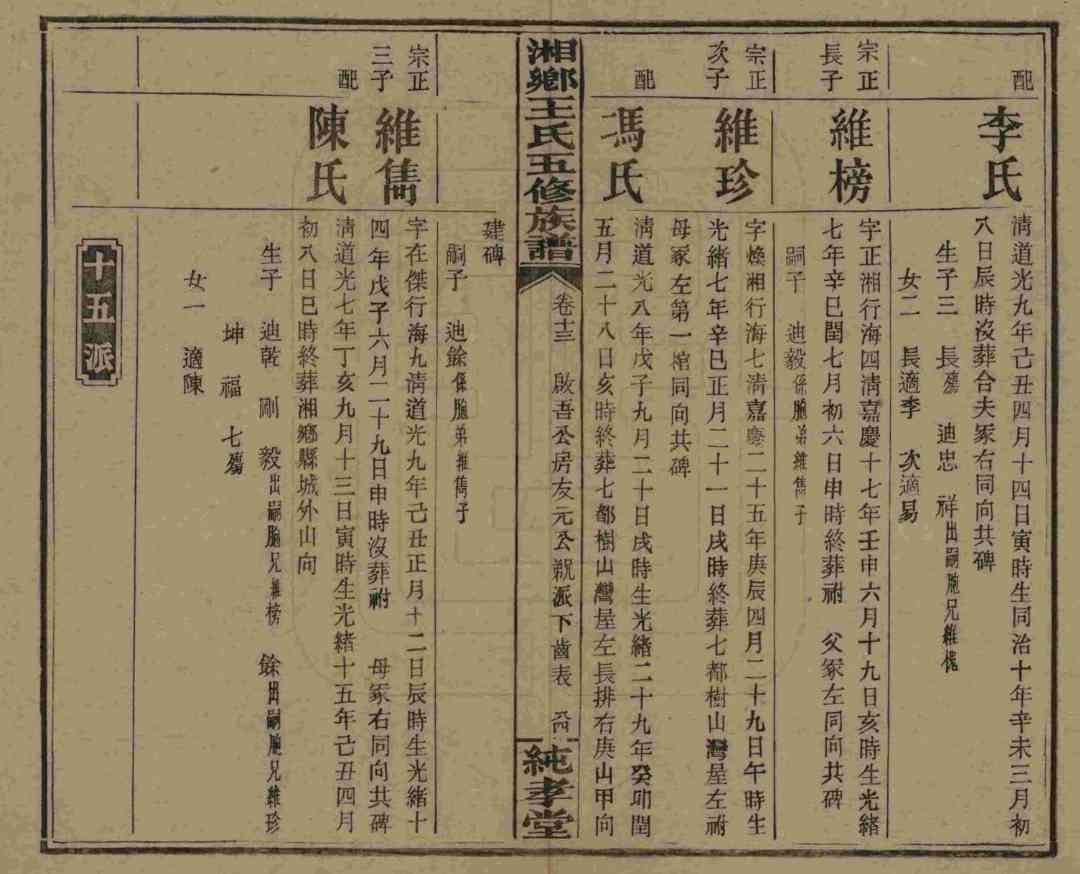 配
李氏
淸道光九年己丑四月十四日寅時生同治十年辛未三月初
八日辰時沒葬合夫冢右同向共碑
生子三 長殤 迪忠 祥出嗣胞兄維槐
女二 長適李 次適易
宗正
長子
維榜
字正湘行海四淸嘉慶十七年壬申六月十九日亥時生光緒
七年辛巳閏七月初六日申時終葬祔 父冢左同向共碑
嗣子 迪毅係胞弟維儁子
宗正
次子
維珍
字煥湘行海七淸嘉慶二十五年庚辰四月二十九日午時生
光緒七年辛巳正月二十一日戌時終葬七都樹山灣屋左祔
母冢左第一棺同向共碑
配
馮氏
淸道光八年戊子九月二十日戌時生光緒二十九年癸卯閏
五月二十八日亥時終葬七都樹山灣屋左長排右庚山甲向
湘鄉王氏五修族譜
卷十三 啟吾公房友元公𮎰派下齒表
純孝堂
建碑
嗣子 迪餘係胞弟維儁子
宗正
三子
維儁
字在傑行海九淸道光九年己丑正月十二日辰時生光緒十
四年戊子六月二十九日申時沒葬祔 母冢右同向共碑
配
陳氏
淸道光七年丁亥九月十三日寅時生光緒十五年己丑四月
初八日巳時終葬湘鄉縣城外山向
生子 迪乾 剛 毅出嗣胞兄維榜 餘出嗣胞兄維珍
坤 福 七殤
女一 適陳
十五派